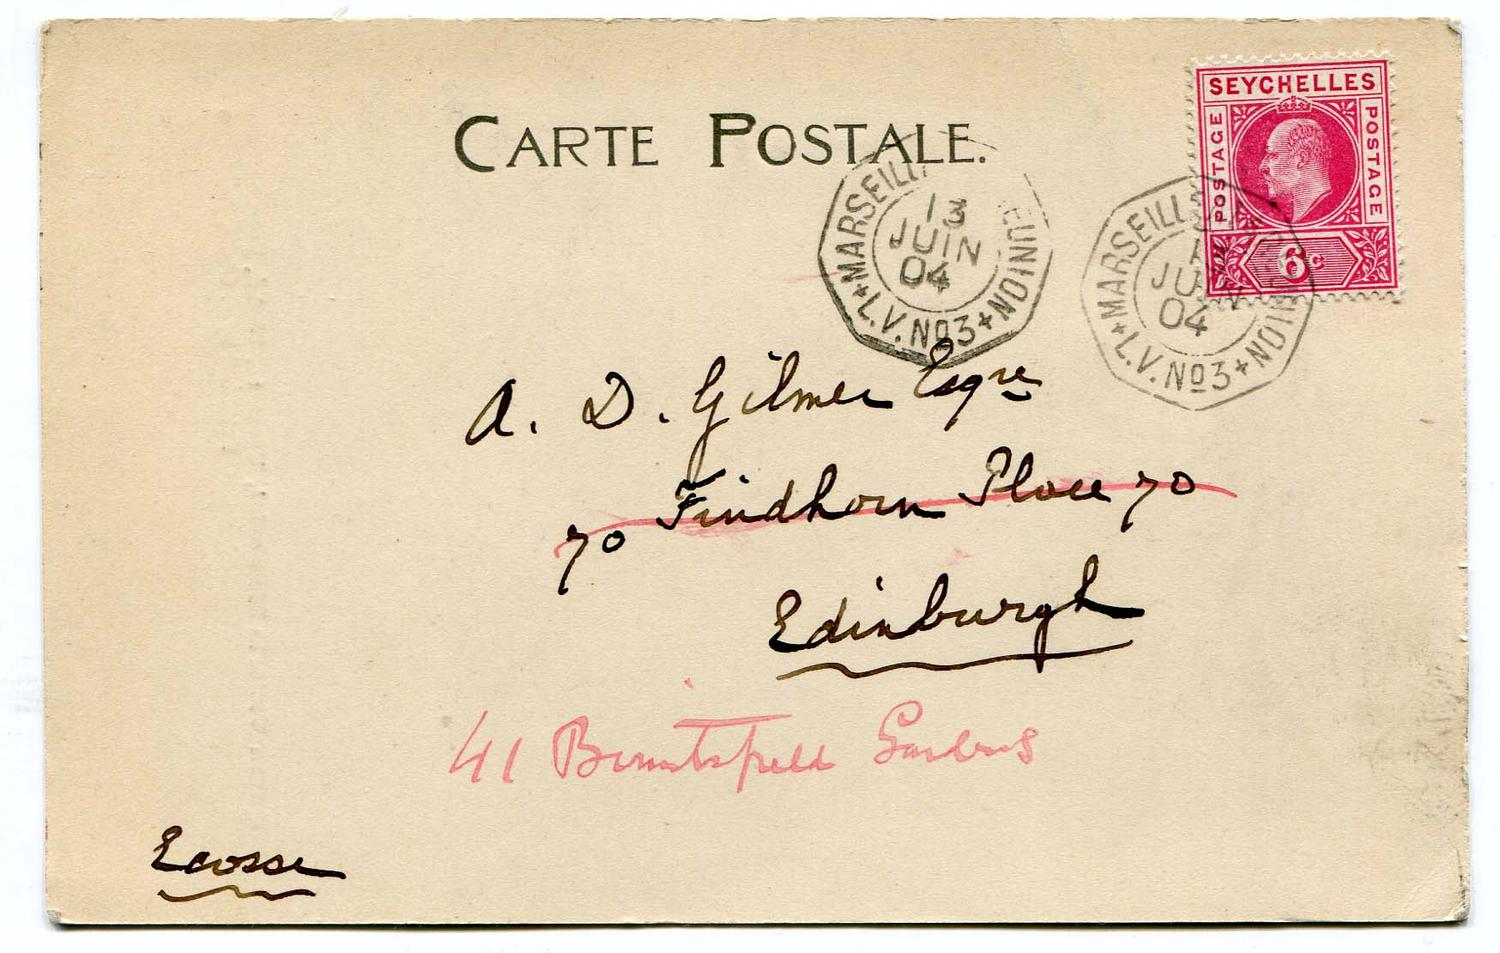 CARTE POSTALE.
SEYCHELLES
POSTAGE
POSTAGE
6c
MARSEILL
13
JUIN
04
EUNION
+L.V.No3+
MARSEILL
JUIN
04
NION
+L.V.No3+
A. D. Gilmer Esqre
70 Findhorn Place 70
Edinburgh
41 Bruntsfield Gardens
Ecosse